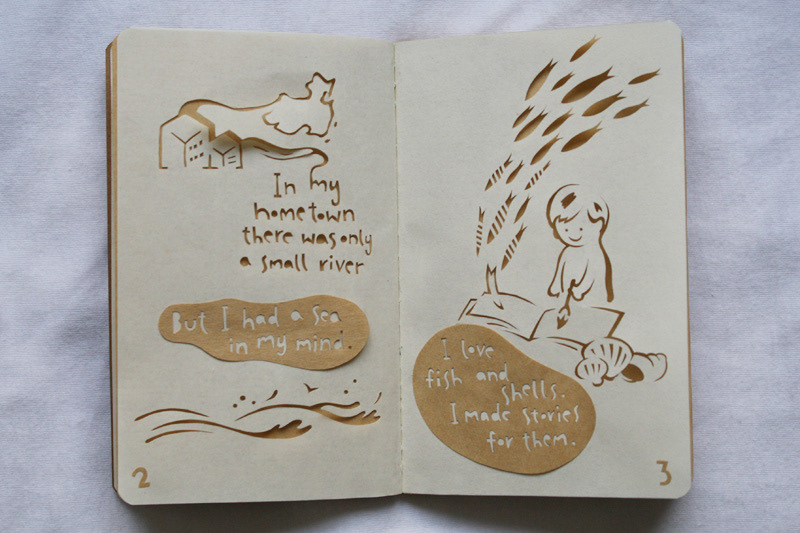 In my
hometown
there was only
a small river
But I had a sea
in my mind.
2
I love
fish and
shells.
I made stories
for them.
3